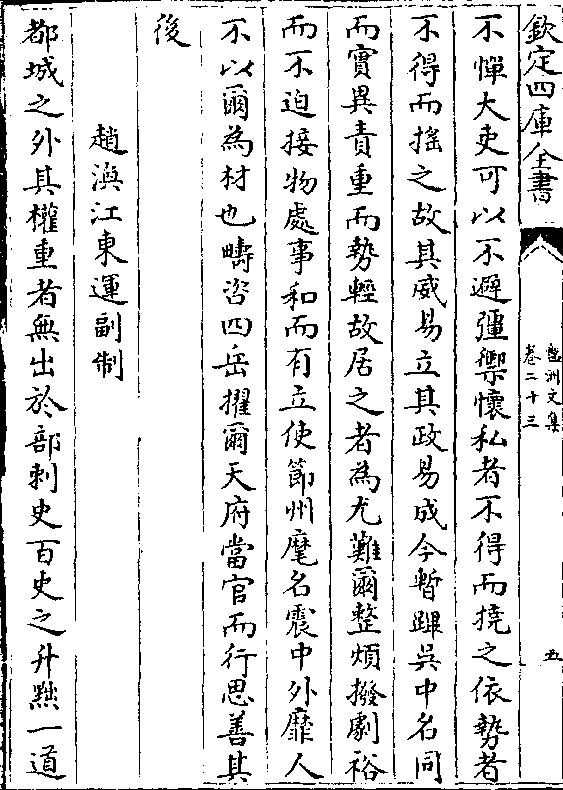 欽定四庫全書
盤洲文集
卷二十三
五
不憚大吏可以不避彊禦懷私者不得而撓之依勢者
不得而搖之故其威易立其政易成今暫蹕吳中名同
而實異責重而勢輕故居之者為尤難爾整煩撥劇裕
而不迫接物處事和而有立使節州麾名震中外靡人
不以爾為材也疇咨四岳擢爾天府當官而行思善其
後
趙渙江東運副制
都城之外其權重者無出於部刺史百吏之升黜一道